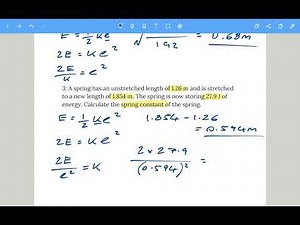 E = 1/2 k e²
2E = k e²
2E/k = e²
√ 192 = 0.68m
3: A spring has an unstretched length of 1.26 m and is stretched
to a new length of 1.854 m. The spring is now storing 27.9 J of
energy. Calculate the spring constant of the spring.
E = 1/2 k e² 1.854 - 1.26
= 0.594m
2E = k e²
2E/e² = k 2 x 27.9/(0.594)² =